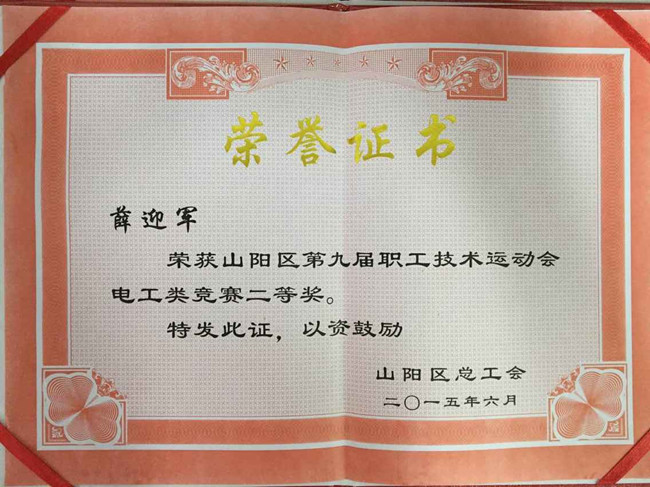 荣誉证书
薛迎军
荣获山阳区第九届职工技术运动会
电工类竞赛二等奖。
特发此证，以资鼓励
山阳区总工会
二〇一五年六月